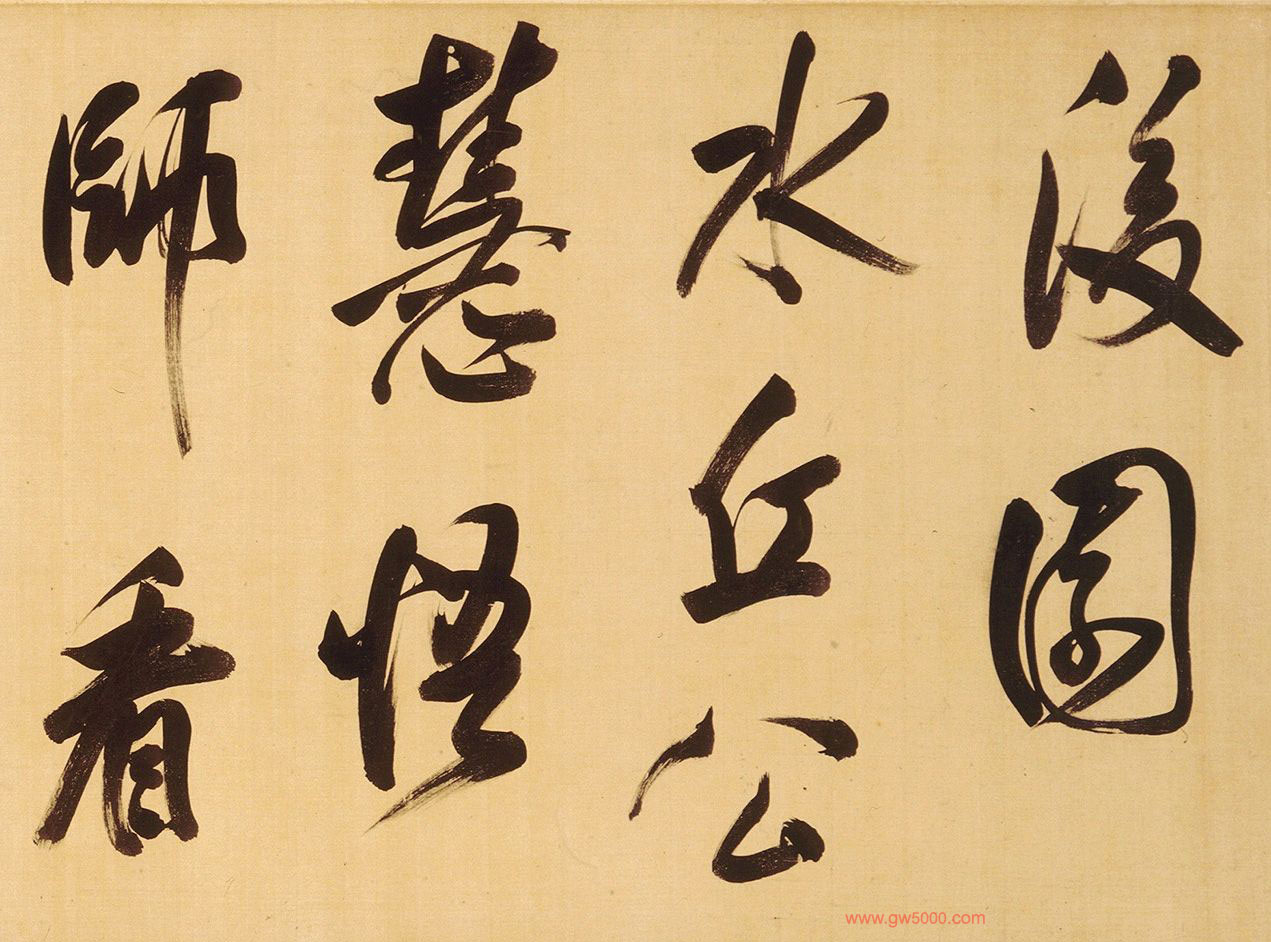 後園
水丘公
慧悟
師看
www.gw5000.com